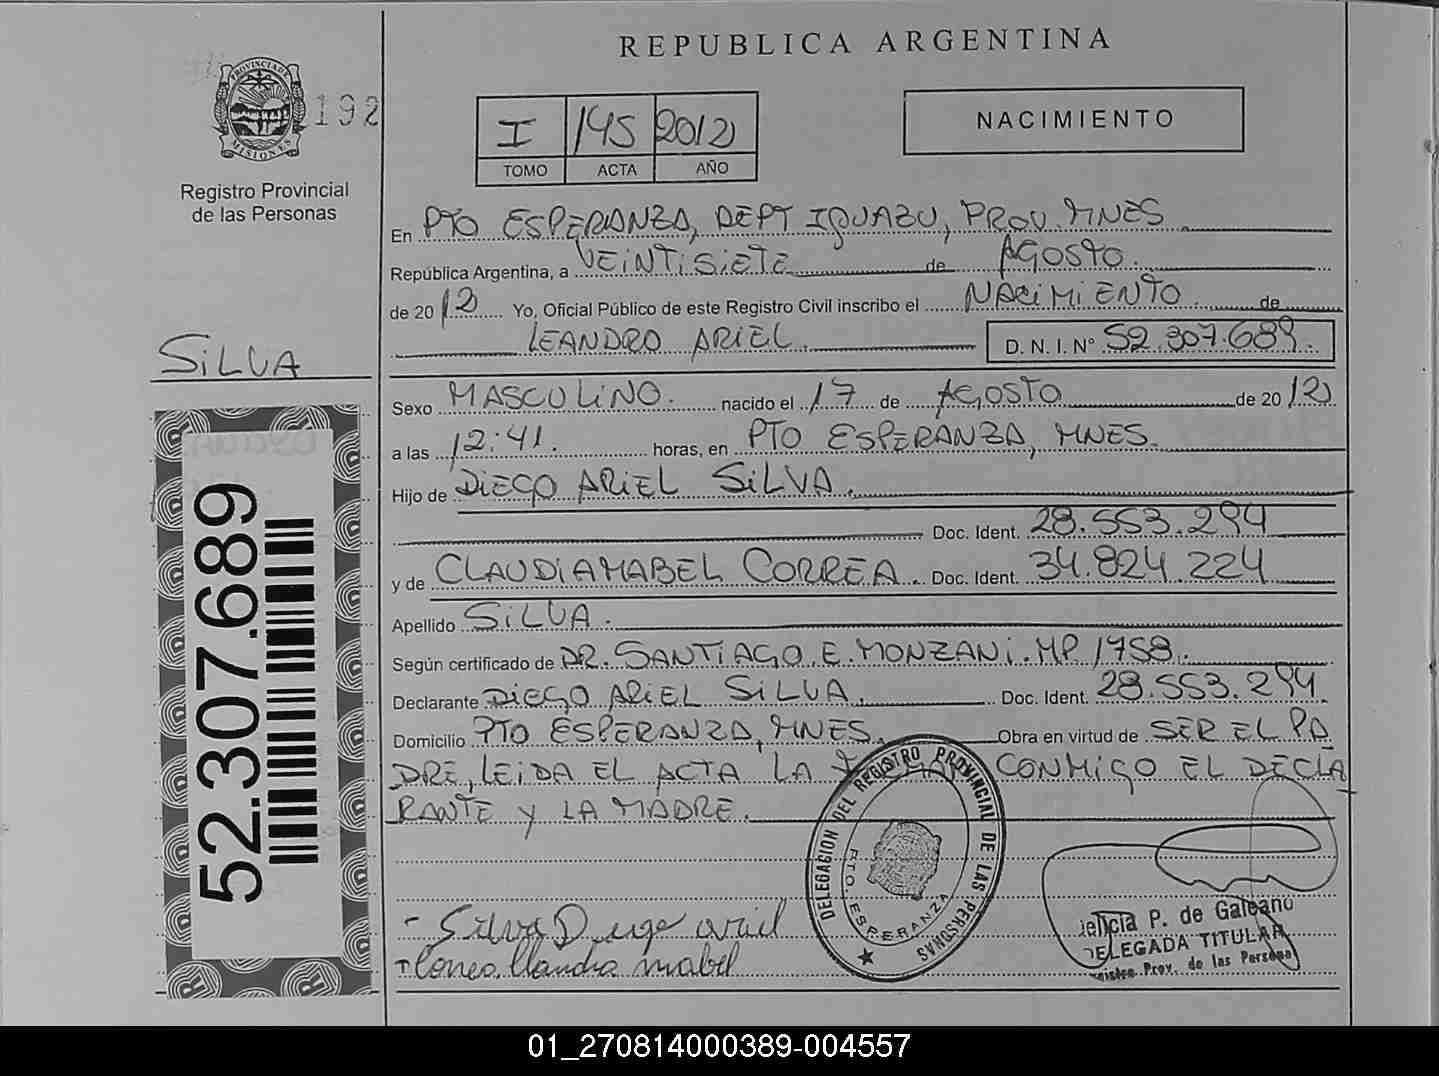 REPUBLICA ARGENTINA
PROVINCIA DE
MISIONES
192
Registro Provincial
de las Personas
I 145 2012
TOMO ACTA AÑO
NACIMIENTO
En PTO ESPERANZA, DEPT IGUAZU, PROV. MNES
República Argentina, a VEINTISIETE de AGOSTO.
de 2012 Yo, Oficial Público de este Registro Civil inscribo el NACIMIENTO de
LEANDRO ARIEL. D. N. I. N° 52.307.689.
SILVA
Sexo MASCULINO. nacido el 17 de AGOSTO de 2012
a las 12:41. horas, en PTO ESPERANZA, MNES.
Hijo de DIEGO ARIEL SILVA.
Doc. Ident. 28.553.294
y de CLAUDIA MABEL CORREA. Doc. Ident. 34.824.224
Apellido SILVA.
Según certificado de DR. SANTIAGO. E. MONZANI. MP 1758.
Declarante DIEGO ARIEL SILVA. Doc. Ident. 28.553.294.
Domicilio PTO ESPERANZA, MNES. Obra en virtud de SER EL PA
DRE, LEIDA EL ACTA LA CONMIGO EL DECLA
RANTE Y LA MADRE.
52.307.689
DELEGACION DEL REGISTRO PROVINCIAL DE LAS PERSONAS
PTO. ESPERANZA
- Silva Diego ariel
Correa Claudia mabel
P. de Galeano
DELEGADA TITULAR
Prov. de las Personas
01_270814000389-004557